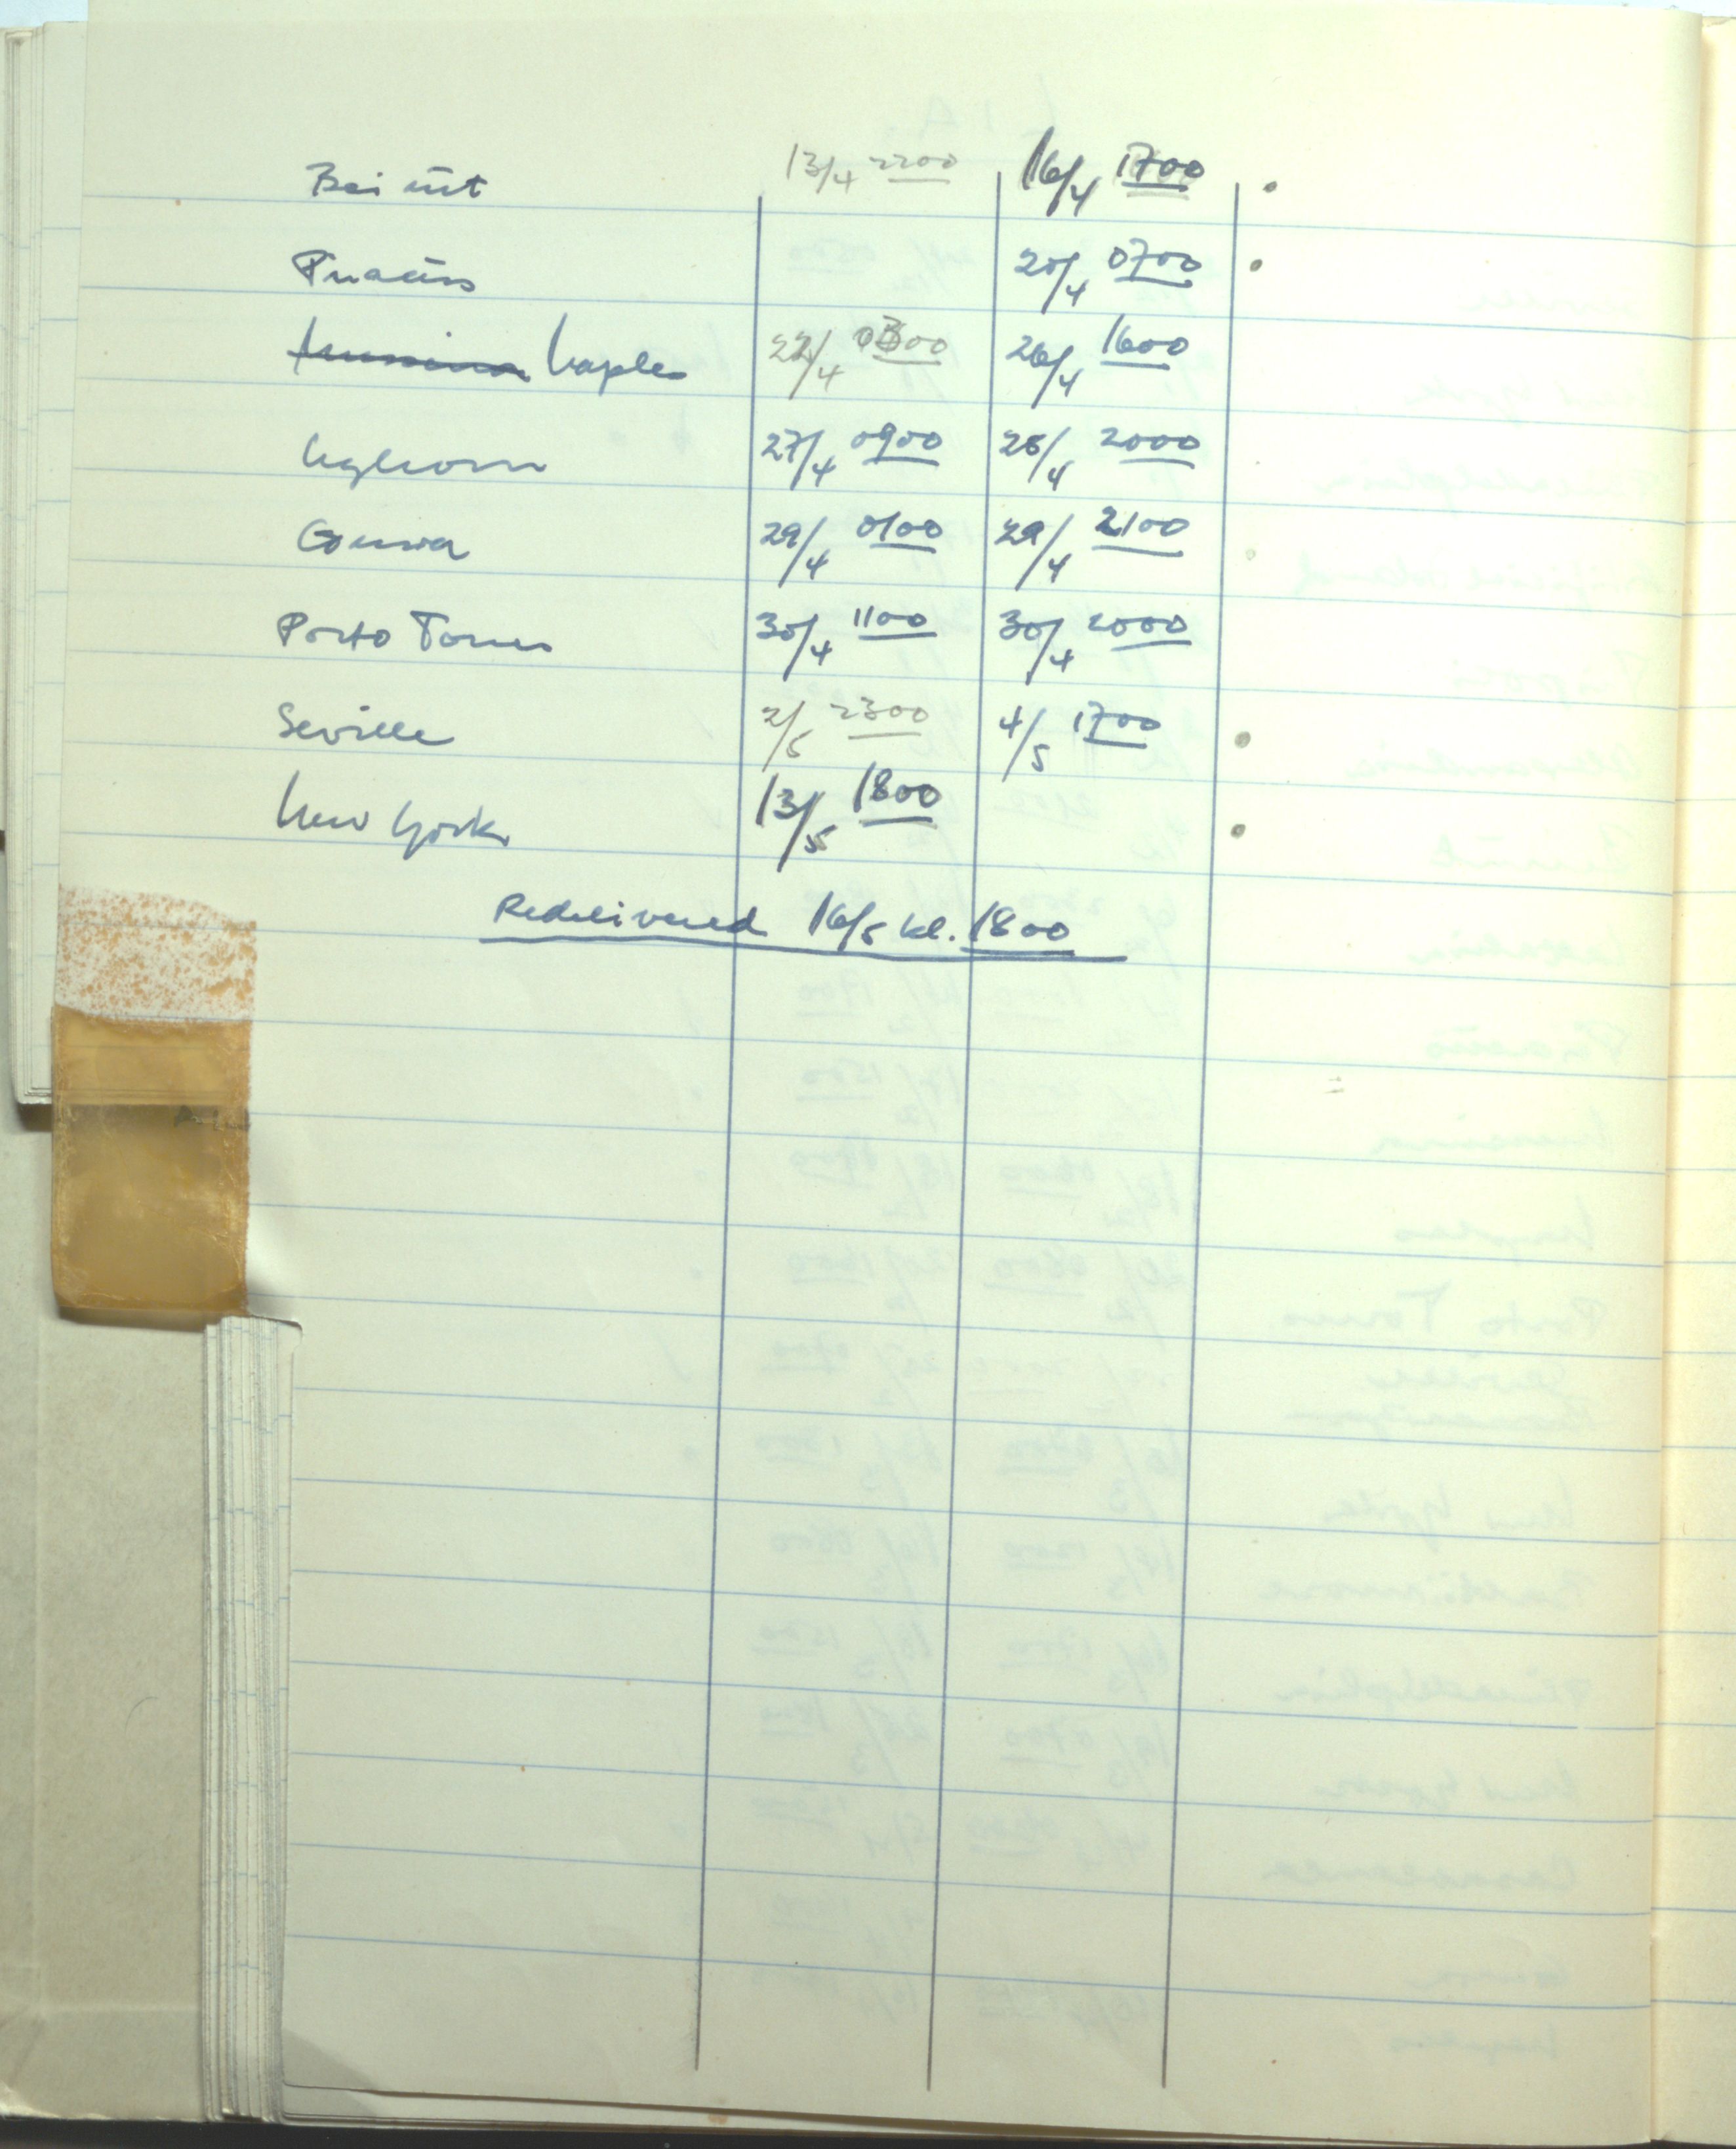 Beirüt 13/4 2200 16/4 1700
Piraeüs 20/4 0700
Messina Naples 22/4 0300 26/4 1600
Leghorn 27/4 0900 28/4 2000
Genova 29/4 0100 29/4 2100
Porto Torres 30/4 1100 30/4 2000
Seville 2/5 2300 4/5 1700
New York 13/5 1800
Redelivered 16/5 kl. 1800